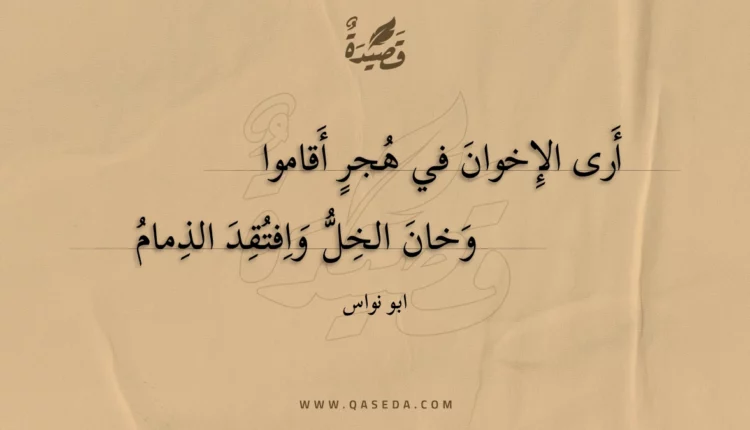 قَصِيْدَةٌ
أَرى الإِخوانَ في هُجرٍ أَقاموا
وَخانَ الخِلُّ وَاِفتُقِدَ الذِمامُ
ابو نواس
WWW.QASEDA.COM